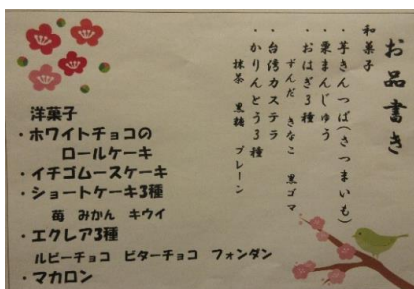 お品書き
和菓子
・芋きんつば(さつまいも)
・栗まんじゅう
・おはぎ3種
ずんだ きなこ 黒ゴマ
・台湾カステラ
・かりんとう3種
抹茶 黒糖 プレーン
洋菓子
・ホワイトチョコの
ロールケーキ
・イチゴムースケーキ
・ショートケーキ3種
苺 みかん キウイ
・エクレア3種
ルビーチョコ ビターチョコ フォンダン
・マカロン